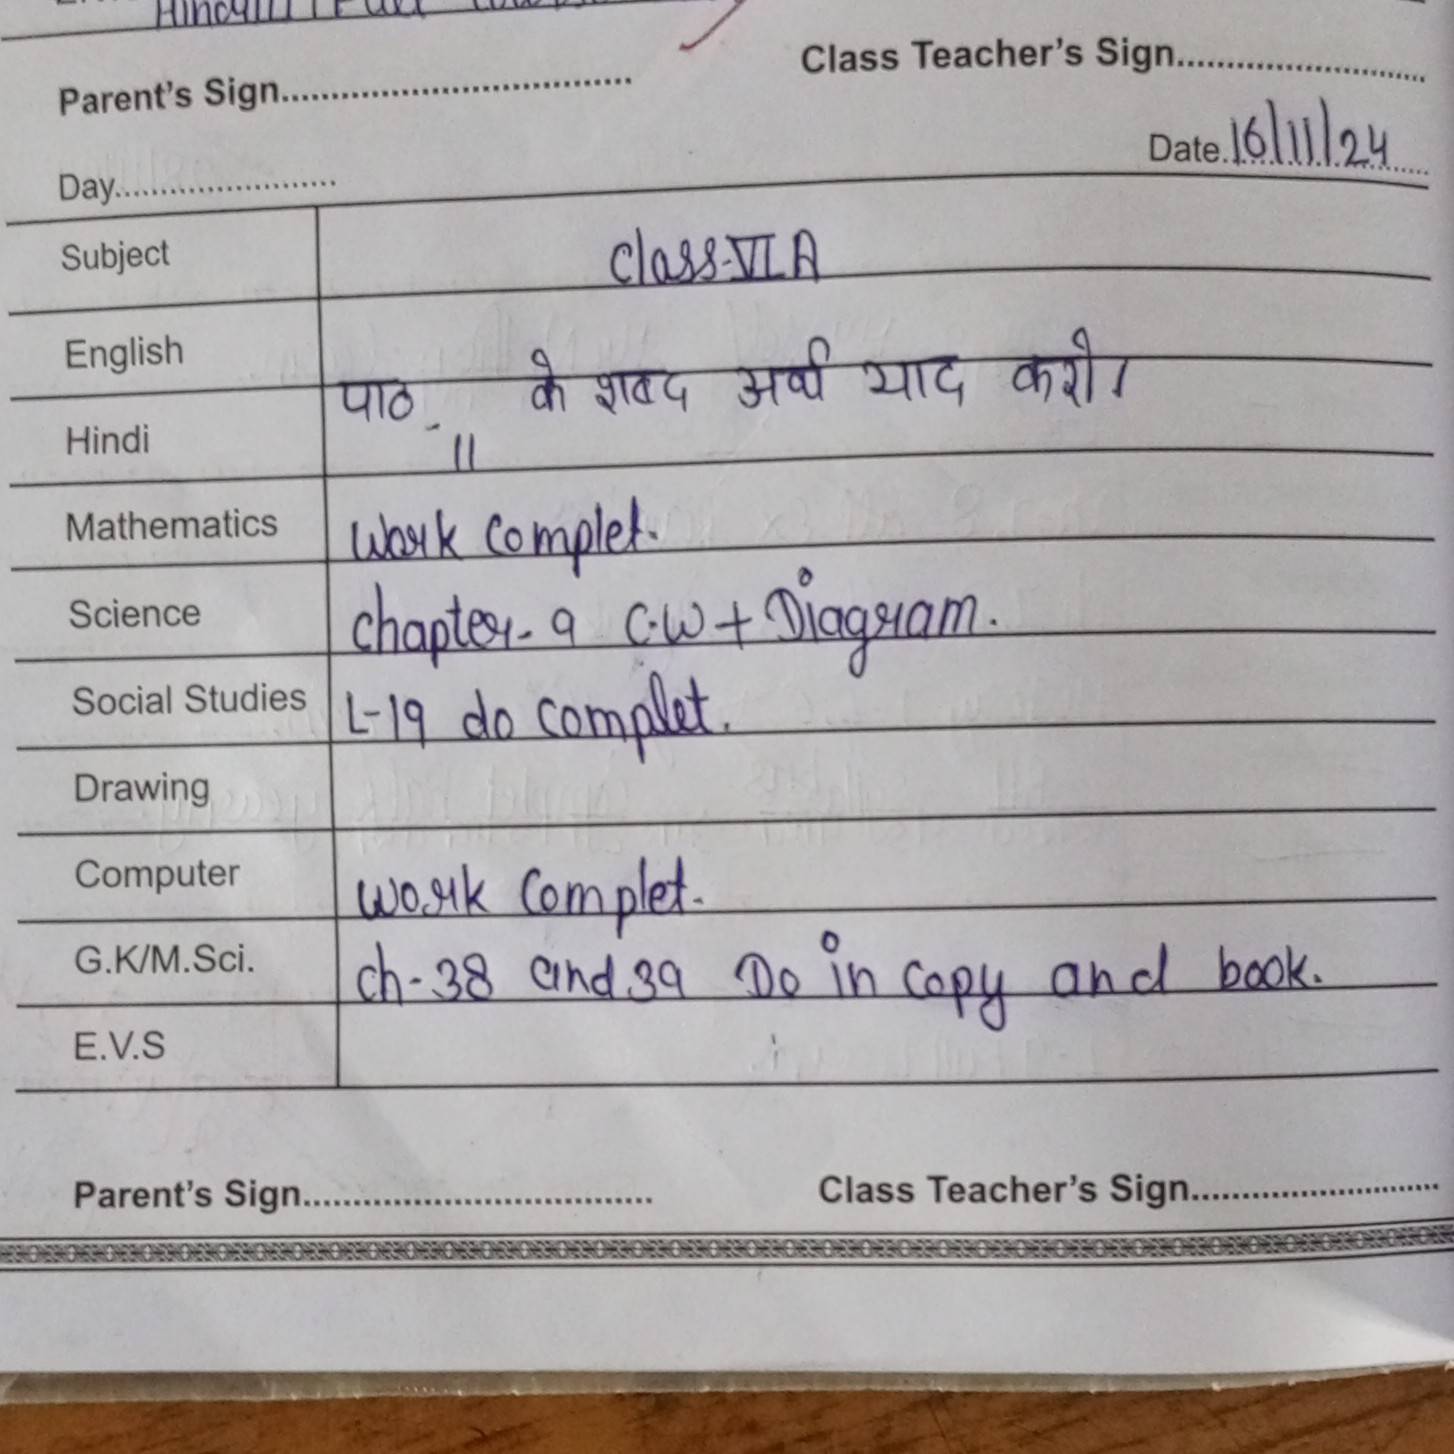 Parent's Sign..................................
Class Teacher's Sign..........................
Date.16/11/24
Day.......................
Subject Class-VI A
English
Hindi पाठ - 11 के शबद अर्थ याद करो।
Mathematics Work Complet.
Science Chapter-9 C.W + Diagram.
Social Studies L-19 do Complet.
Drawing
Computer Work Complet.
G.K/M.Sci. Ch-38 and 39 Do in Copy and book.
E.V.S
Parent's Sign..................................
Class Teacher's Sign..........................